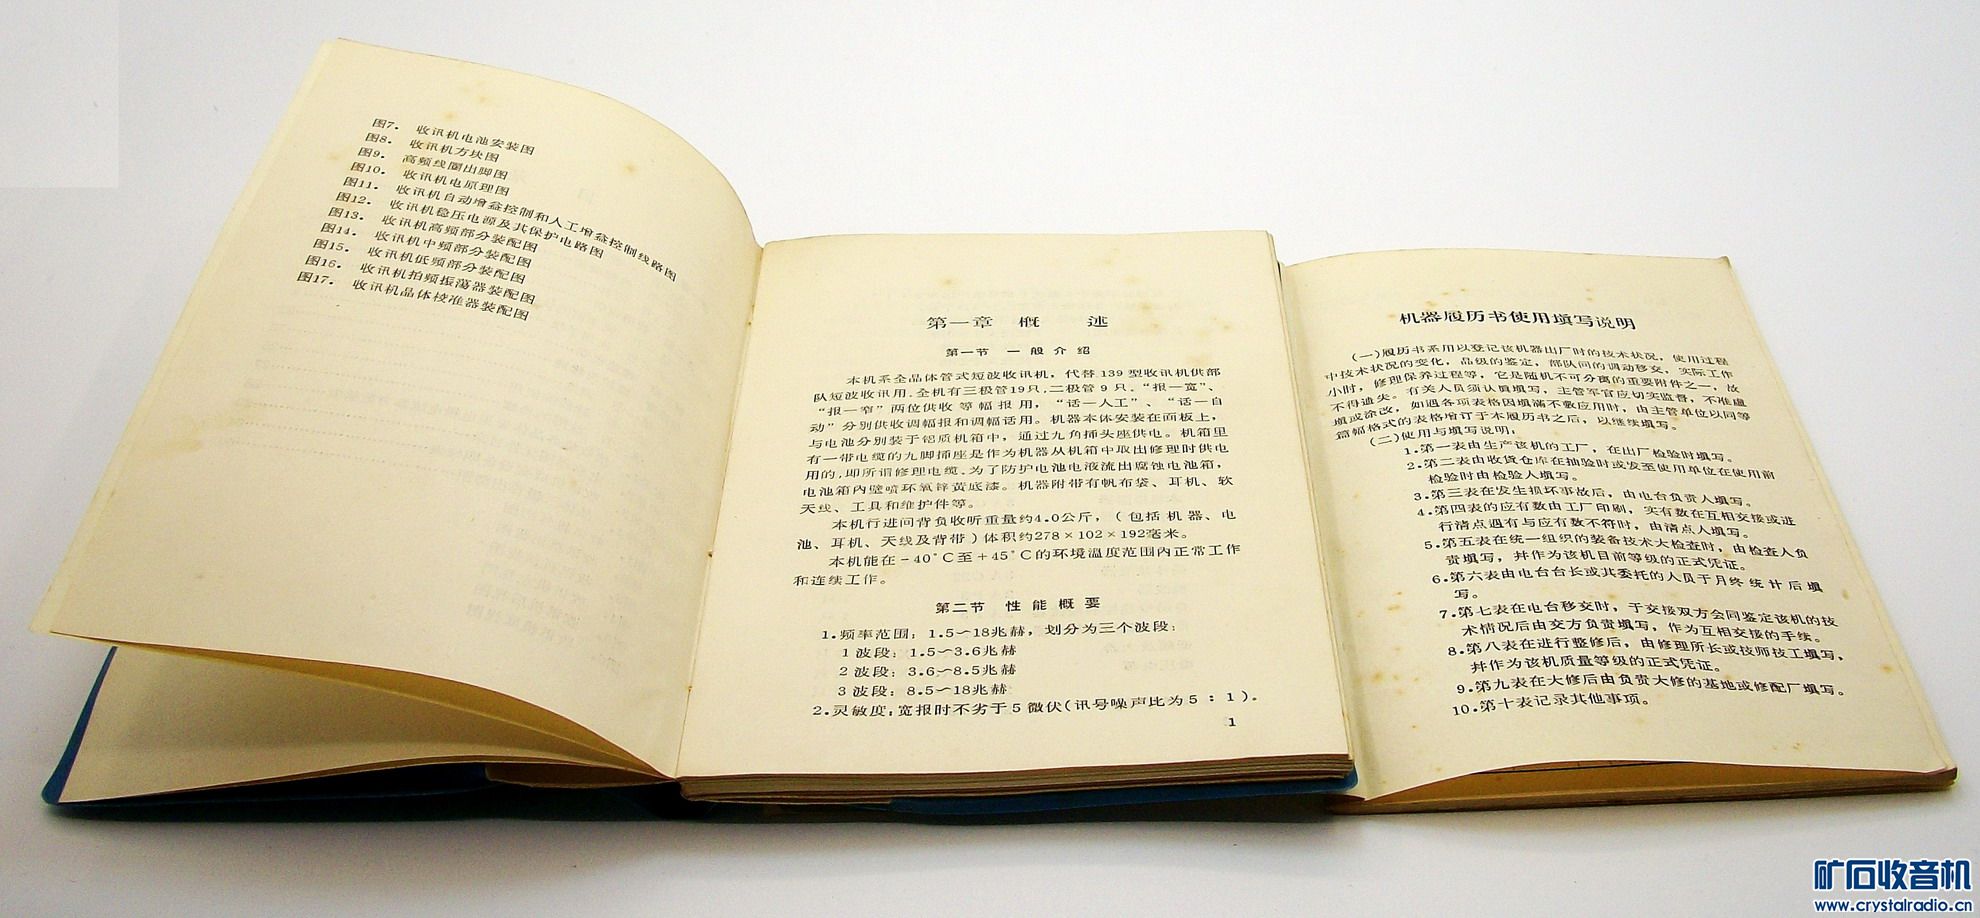 图7. 收讯机电池安装图
图8. 收讯机方块图
图9. 高频线圈出脚图
图10. 收讯机电原理图
图11. 收讯机自动增益控制和人工增益控制线路图
图12. 收讯机稳压电源及其保护电路图
图13. 收讯机高频部分装配图
图14. 收讯机中频部分装配图
图15. 收讯机低频部分装配图
图16. 收讯机拍频振荡器装配图
图17. 收讯机晶体校准器装配图
第一章 概 述
第一节 一般介绍
本机系全晶体管式短波收讯机，代替139型收讯机供部
队短波收讯用.全机有三极管19只,二极管9只.“报一宽”、
“报一窄”两位供收等幅报用，“话一人工”、“话一自
动”分别供收调幅报和调幅话用。机器本体安装在面板上，
与电池分别装于铝质机箱中，通过九角插头座供电。机箱里
有一带电缆的九脚插座是作为机器从机箱中取出修理时供电
用的,即所谓修理电缆.为了防护电池电液流出腐蚀电池箱，
电池箱内壁喷环氧锌黄底漆。机器附带有帆布袋、耳机、软
天线、工具和维护件等。
本机行进间背负收听重量约4.0公斤，（包括机器、电
池、耳机、天线及背带）体积约278×102×192毫米。
本机能在-40°C至+45°C的环境温度范围内正常工作
和连续工作。
第二节 性能概要
1.频率范围：1.5~18兆赫，划分为三个波段：
1波段：1.5~3.6兆赫
2波段：3.6~8.5兆赫
3波段：8.5~18兆赫
2.灵敏度：宽报时不劣于5微伏(讯号噪声比为5：1)。
1
机器履历书使用填写说明
(一)履历书系用以登记该机器出厂时的技术状况，使用过程
中技术状况的变化，品级的鉴定，部队间的调动移交，实际工作
小时，修理保养过程等，它是随机不可分离的重要附件之一，故
不得遗失。有关人员须认真填写，主管军官应切实监督，不准虚
填或涂改，如遇各项表格因填满不敷应用时，由主管单位以同等
篇幅格式的表格增订于本履历书之后，以继续填写。
(二)使用与填写说明：
1.第一表由生产该机的工厂，在出厂检验时填写。
2.第二表由收货仓库在抽验时或发至使用单位在使用前
检验时由检验人填写。
3.第三表在发生损坏事故后，由电台负责人填写。
4.第四表的应有数由工厂印刷，实有数在互相交接或进
行清点遇有与应有数不符时，由清点人填写。
5.第五表在统一组织的装备技术大检查时，由检查人负
责填写，并作为该机目前等级的正式凭证。
6.第六表由电台台长或其委托的人员于月终统计后填
写。
7.第七表在电台移交时，于交接双方会同鉴定该机的技
术情况后由交方负责填写，作为互相交接的手续。
8.第八表在进行整修后，由修理所长或技师技工填写，
并作为该机质量等级的正式凭证。
9.第九表在大修后由负责大修的基地或修配厂填写。
10.第十表记录其他事项。
矿石收音机
www.crystalradio.cn